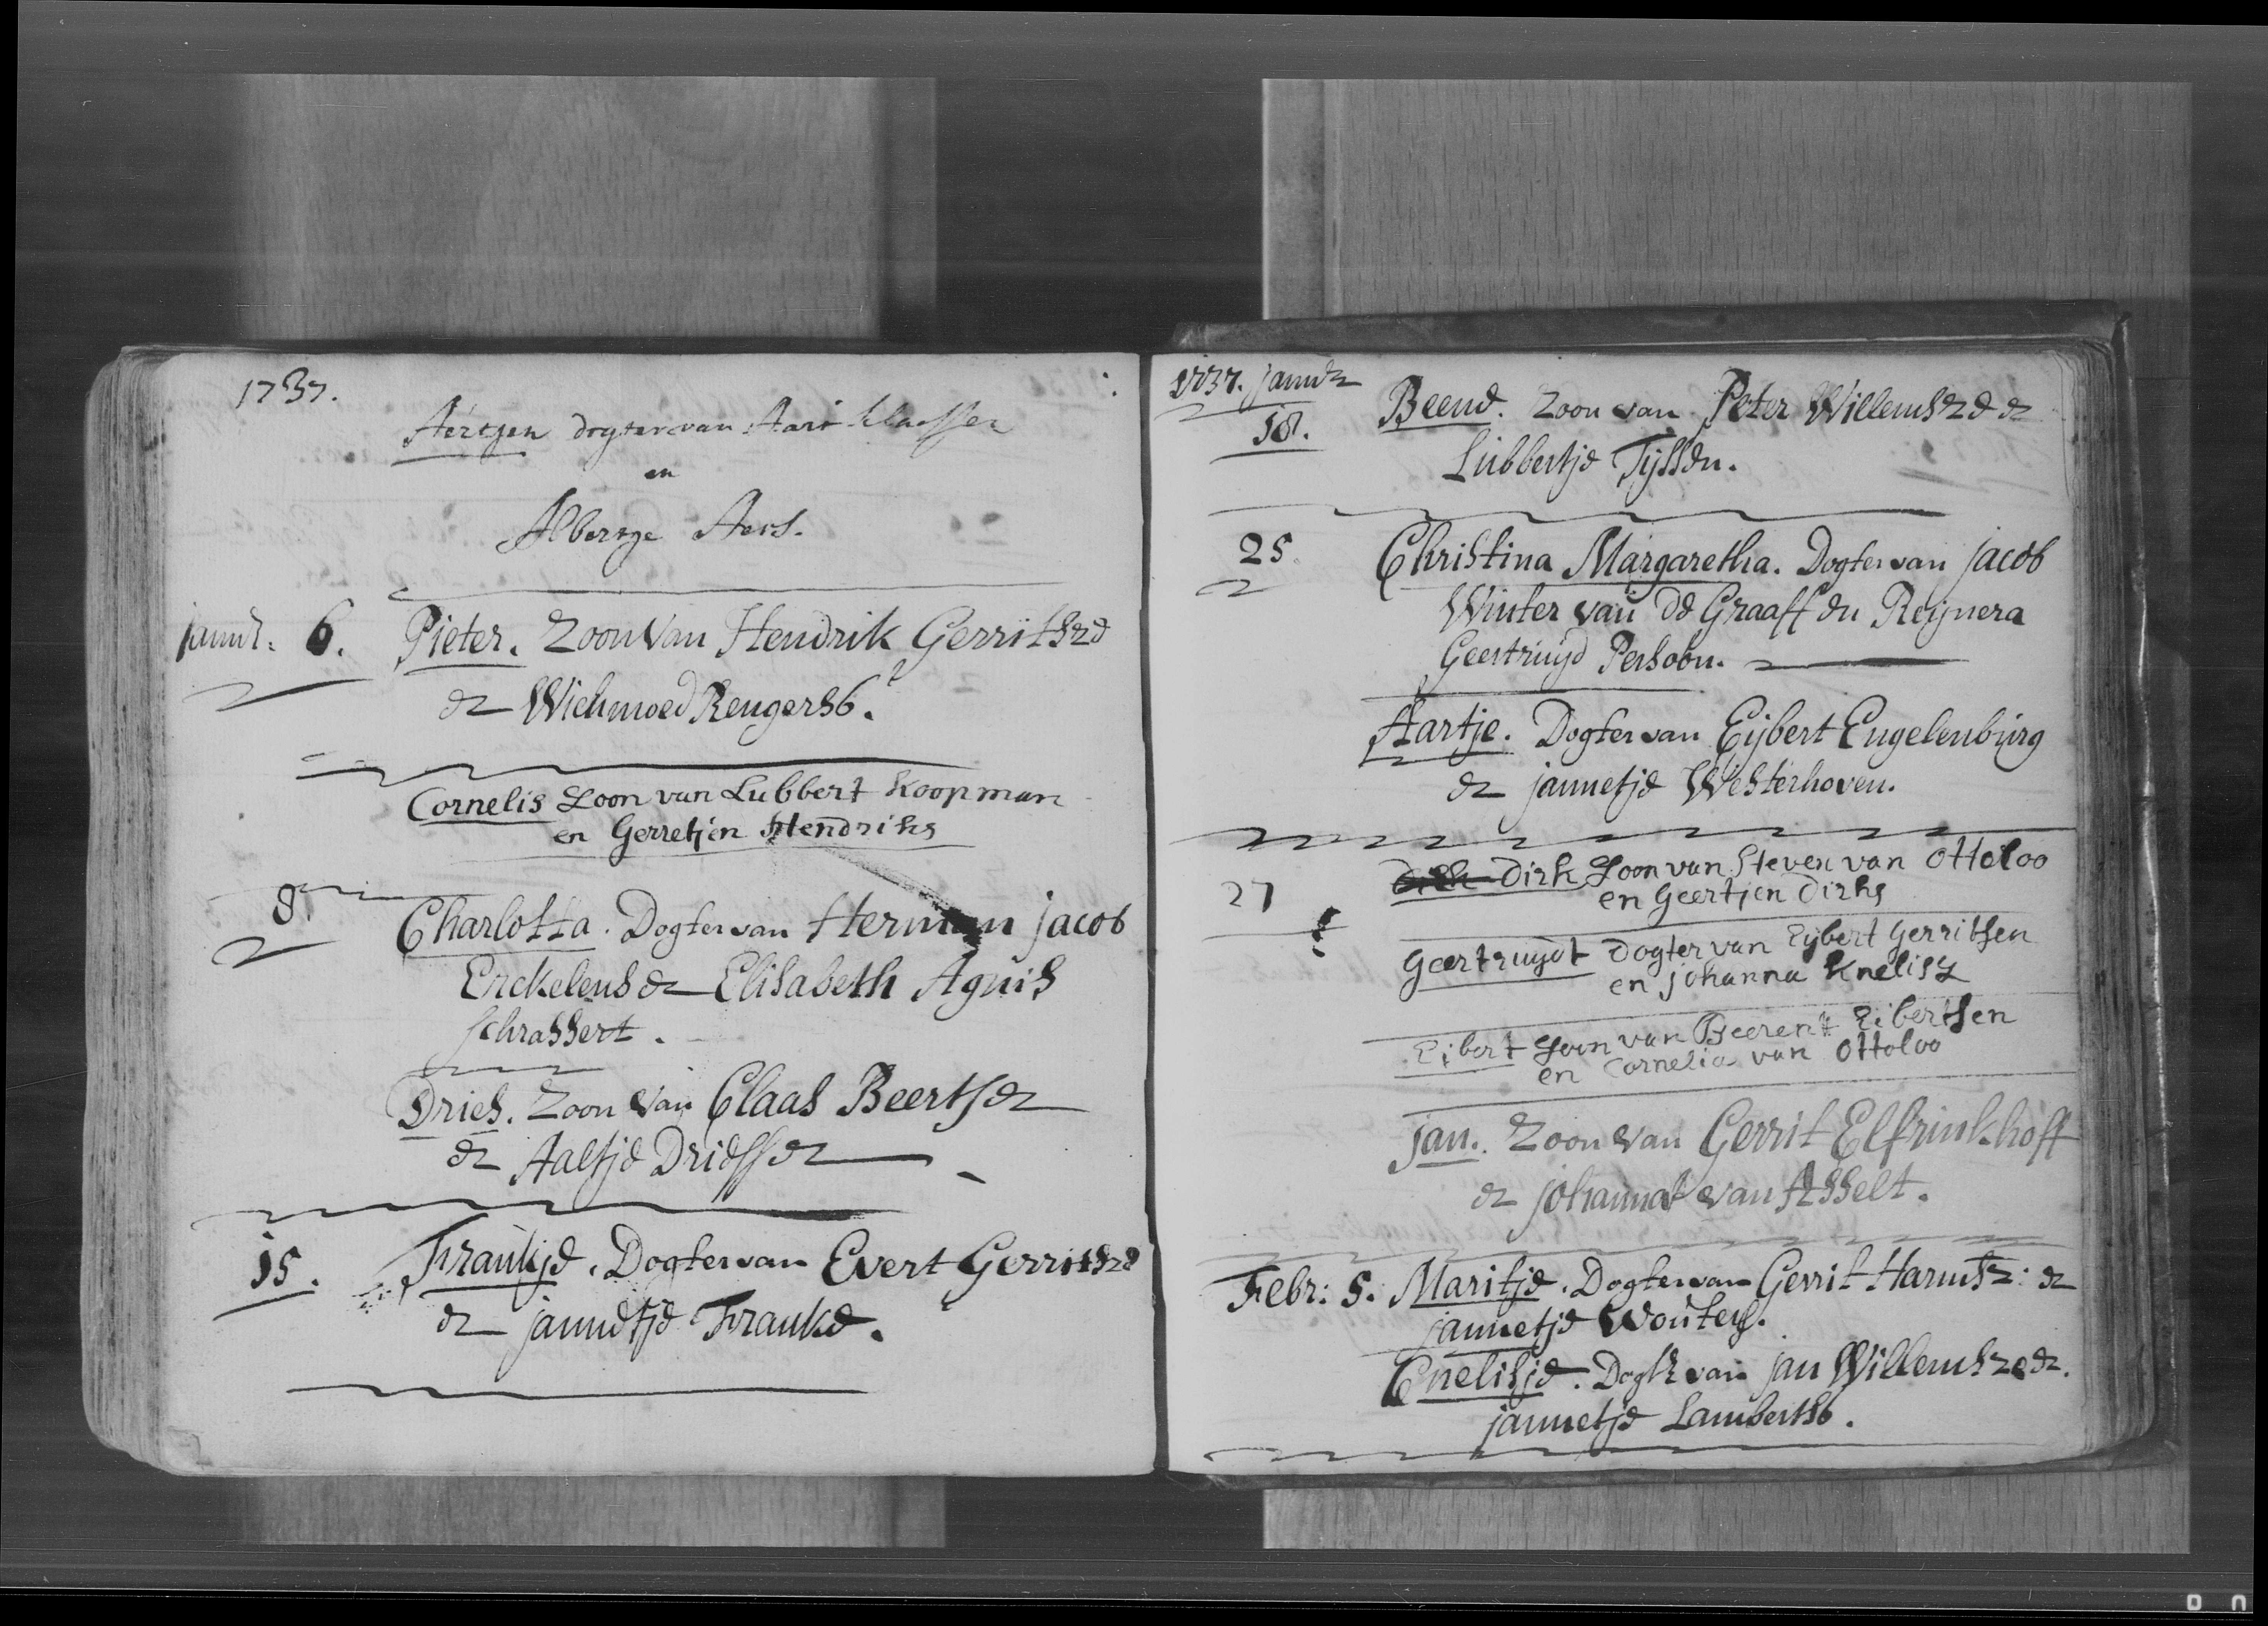 1737.
Aertjen dogter van Aart Klaassen
en
Albertje Aers.
janur: 6. Pieter. Zoon van Hendrik Gerritsze
en Wichmoed Rengers6.
Cornelis Soon van Lubbert Koopman
en Gerretjen Hendriks
8. Charlotta. Dogter van Herman jacob
Erckelens en Elisabeth Agnis
schrassert.
Dries. Zoon van Claas Beertsen
en Aaltje Driessen
15. Frankje. Dogter van Evert Gerritsze
en jannetje Franke.
1737. januer
18. Beend. Zoon van Peter Willemsze en
Lubbertje Tijssen.
25. Christina Margaretha. Dogter van jacob
Winter van de Graaff en Reijnera
Geertruijd Persoon.
Aartje. Dogter van Eijbert Engelenburg
en jannetje Westerhoven.
27 Dirk Soon van Steven van Otteloo
en Geertjen Dirks
Geertruijdt Dogter van Eijbert Gerritsen
en johanna Knelisz
Eibert Soon van Beerent Eibertsen
en Cornelia van Otteloo
jan. Zoon van Gerrit Elfrinkhoff
en johanna van Asselt.
Febr: 5. Maritje. Dogter van Gerrit Harmsz: en
jannetje Wouters.
Cnelisje. Dogtr van jan Willemsze en.
jannetje Lamberts6.